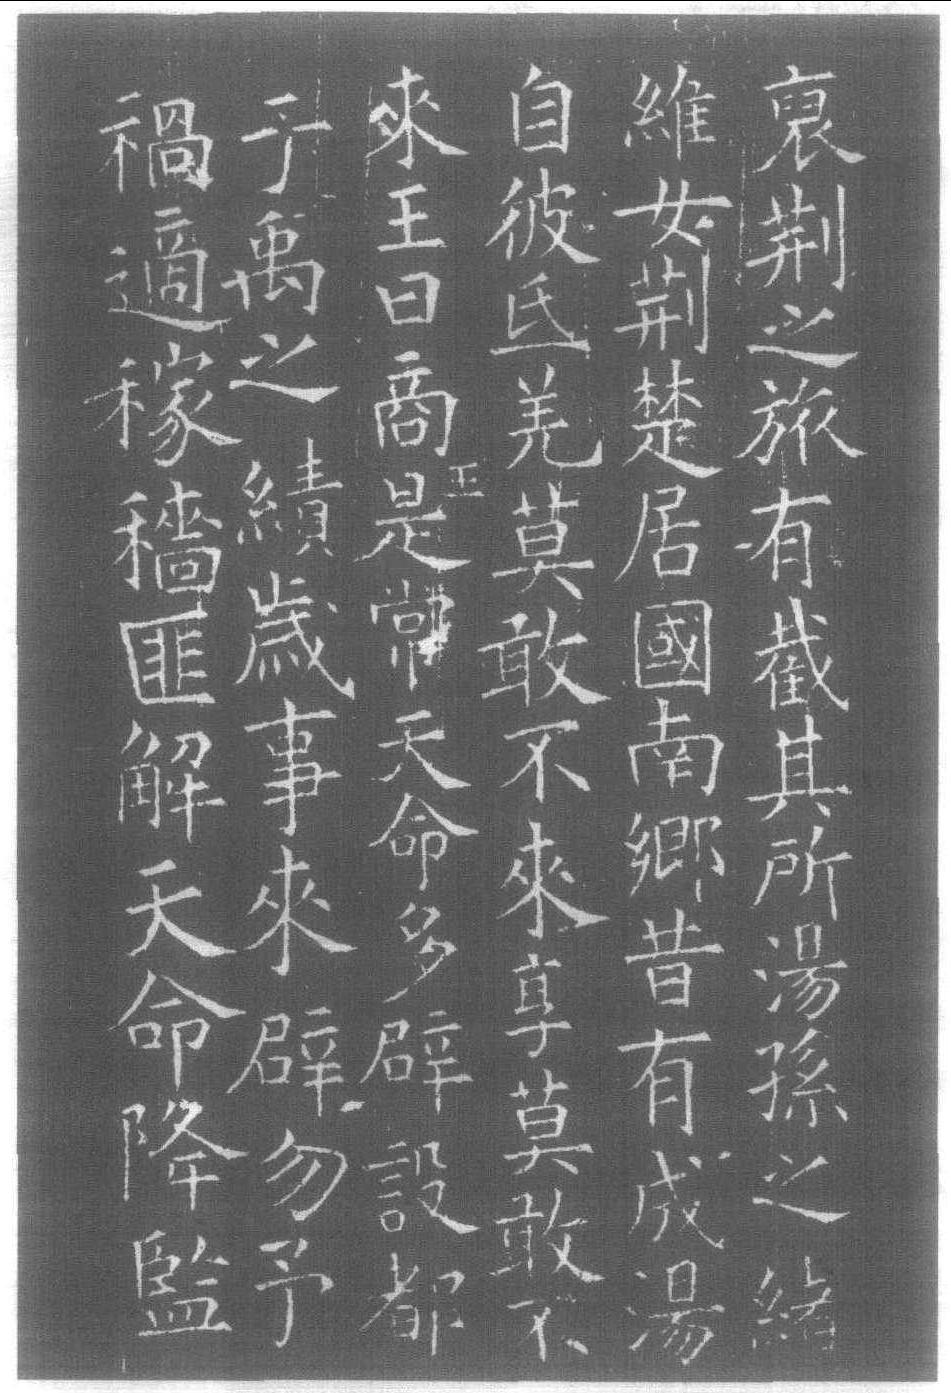 裒荆之旅有截其所湯孫之緒
維女荆楚居國南鄉昔有成湯
自彼氐羌莫敢不來享莫敢不
來王曰商王是常天命多辟設都
于禹之績歲事來辟勿予
禍適稼穡匪解天命降監